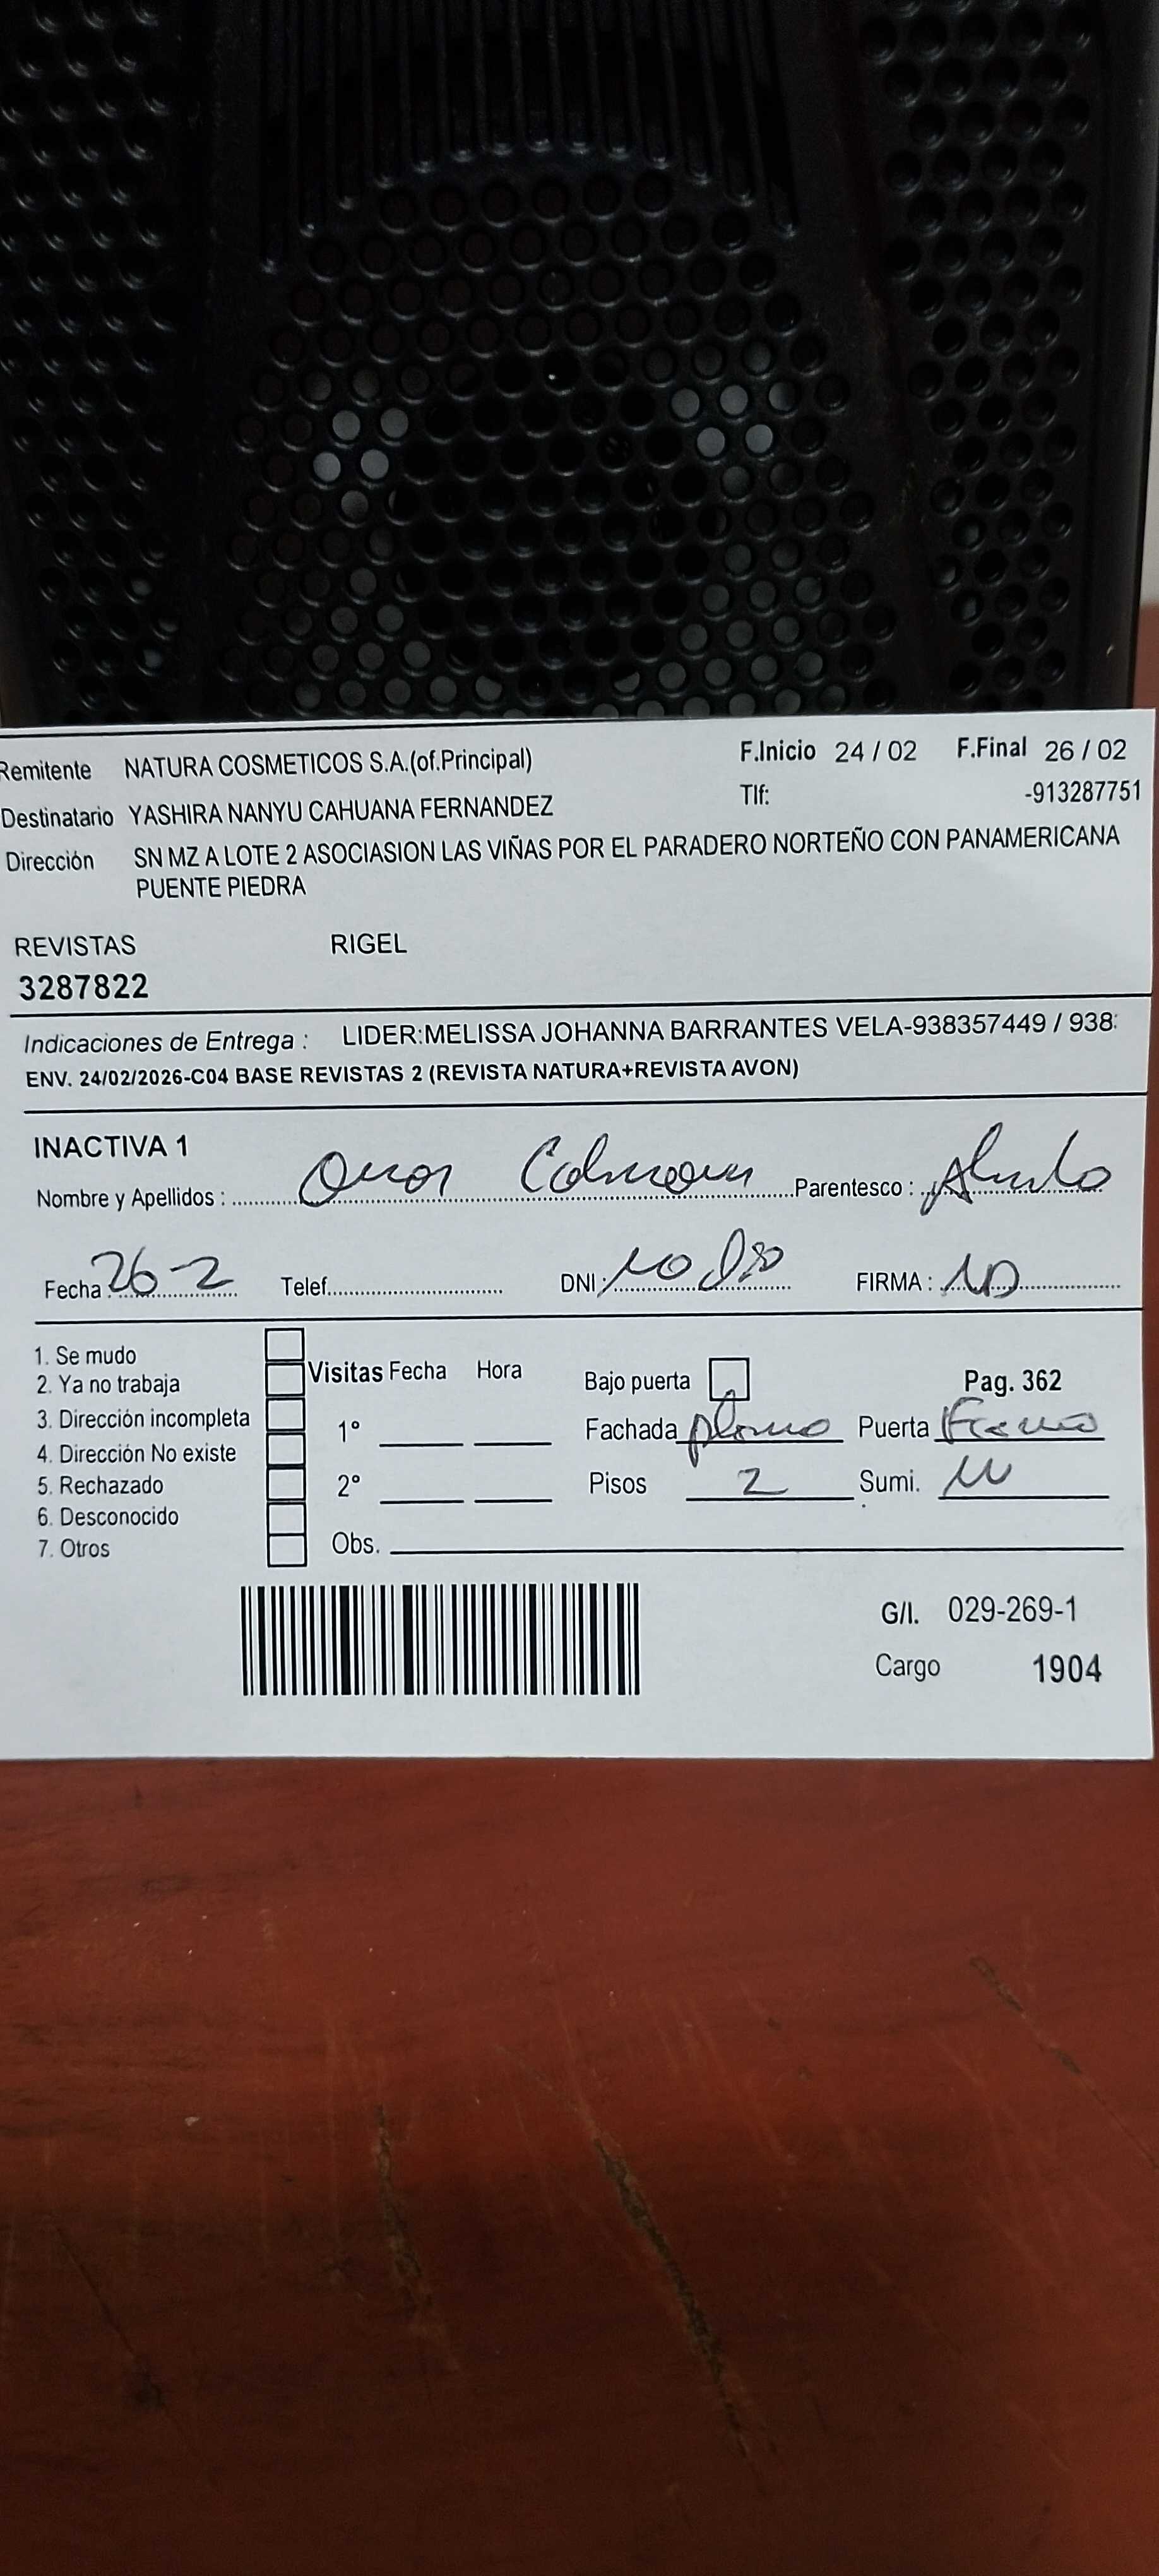 Remitente NATURA COSMETICOS S.A.(of.Principal) F.Inicio 24 / 02 F.Final 26 / 02
Destinatario YASHIRA NANYU CAHUANA FERNANDEZ Tlf: -913287751
Dirección SN MZ A LOTE 2 ASOCIASION LAS VIÑAS POR EL PARADERO NORTEÑO CON PANAMERICANA
PUENTE PIEDRA
REVISTAS RIGEL
3287822
Indicaciones de Entrega : LIDER:MELISSA JOHANNA BARRANTES VELA-938357449 / 938
ENV. 24/02/2026-C04 BASE REVISTAS 2 (REVISTA NATURA+REVISTA AVON)
INACTIVA 1
Nombre y Apellidos : Parentesco :
Fecha 26-2 Telef. DNI: FIRMA :
1. Se mudo
2. Ya no trabaja
3. Dirección incompleta
4. Dirección No existe
5. Rechazado
6. Desconocido
7. Otros
Visitas Fecha Hora
1°
2°
Obs.
Bajo puerta Pag. 362
Fachada plomo Puerta
Pisos 2 Sumi.
G/I. 029-269-1
Cargo 1904